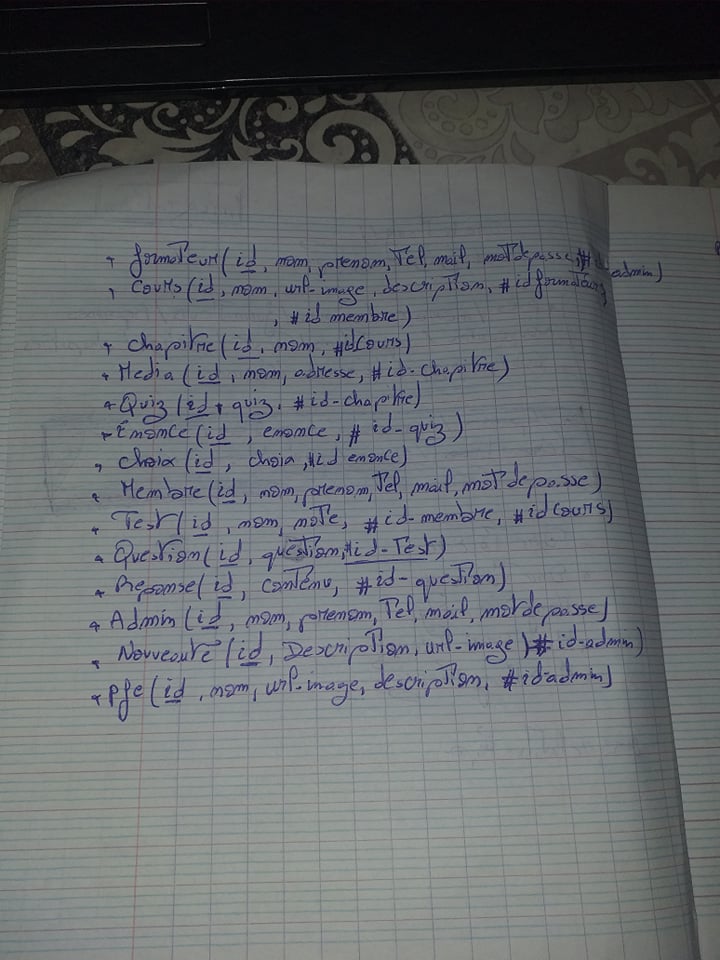 formateur(id, nom, prenom, Tel, mail, motdepasse, #id-admin)
Cours (id, nom, url-image, description, #idformateur,
, #id membre)
chapitre (id, nom, #idCours)
Media (id, nom, adresse, #id-chapitre)
Quiz (id, quiz, #id-chapitre)
Enonce (id, enonce, #id-quiz)
choix (id, choix, #id enonce)
Membre (id, nom, prenom, Tel, mail, motdepasse)
Test (id, nom, note, #id-membre, #idCours)
Question (id, question, #id-Test)
Reponse (id, contenu, #id-question)
Admin (id, nom, prenom, Tel, mail, motdepasse)
Nouveauté (id, Description, url-image) #id-admin)
pfe (id, nom, url-image, description, #id-admin)